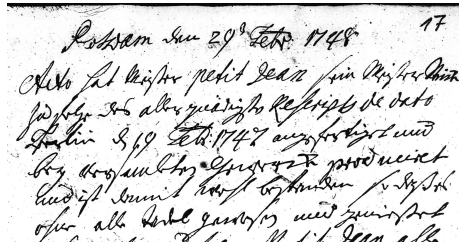 17
Potsdam den 29t Febr. 1748
Acto hat Meister petit Jean sein Meister
zu folge des allergnädigsten Rescripts de dato
Berlin d. 9 Febr. 1747 angefertiget und
bey versambleten Gewerck produciret
und ist damit wohl bestanden
ohne alle Tadel gewesen und
Jean alle